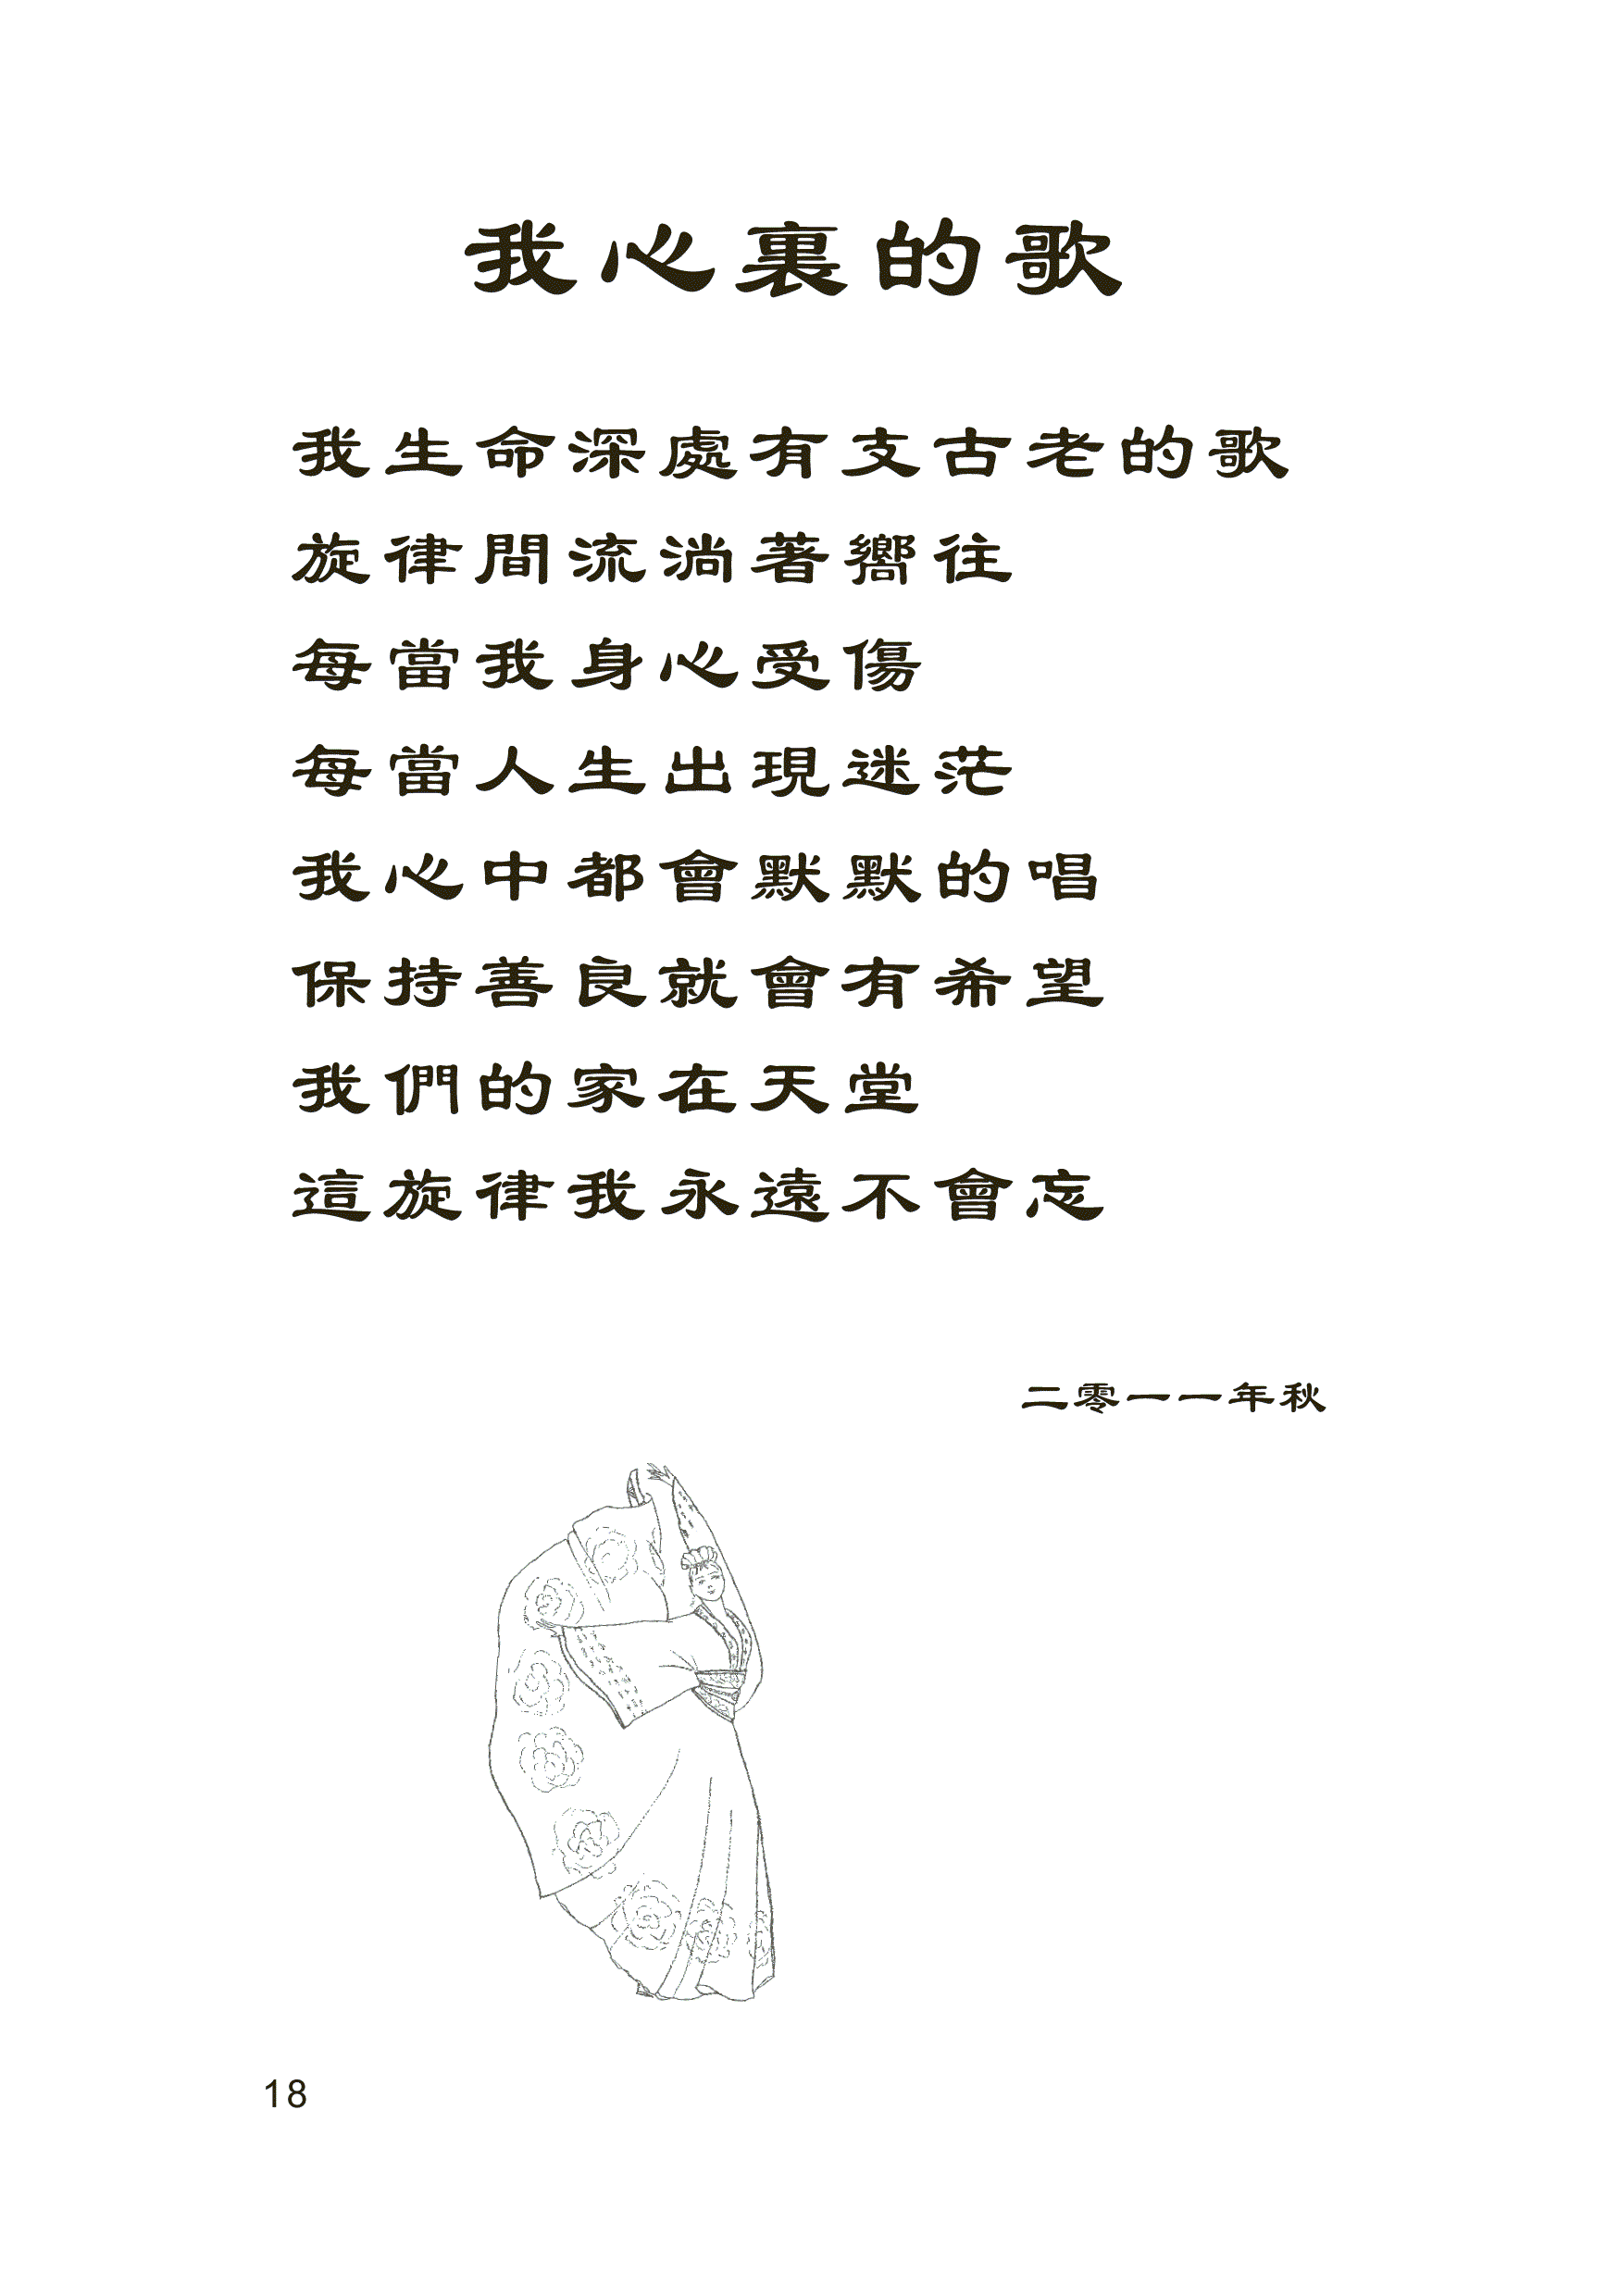 我心裏的歌
我生命深處有支古老的歌
旋律間流淌著嚮往
每當我身心受傷
每當人生出現迷茫
我心中都會默默的唱
保持善良就會有希望
我們的家在天堂
這旋律我永遠不會忘
二零一一年秋
18